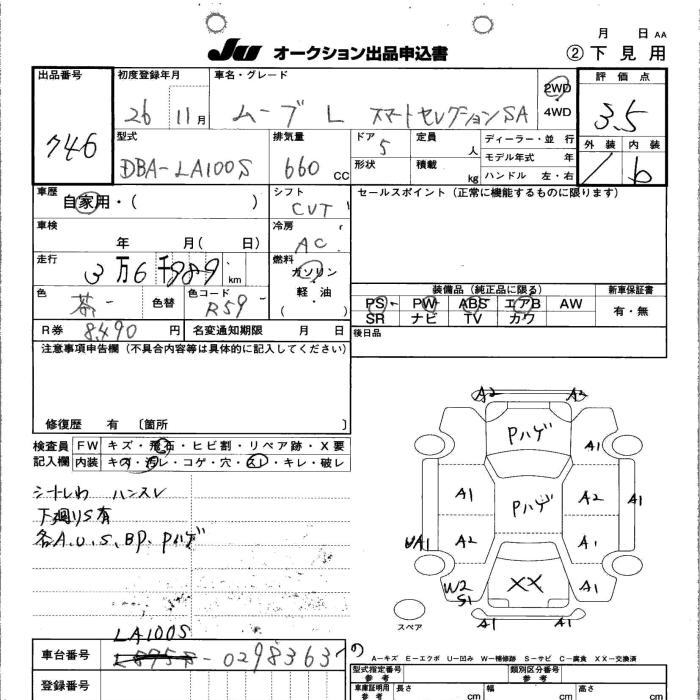 月 日 AA
JU オークション出品申込書 ②下見用
出品番号 初度登録年月 車名・グレード 評価点
746 26 11月 ムーブ L スマートセレクションSA 2WD 4WD 3.5
型式 排気量 ドア 定員 ディーラー・並行 外装 内装
DBA-LA100S 660cc 5 人 モデル年式 年
形状 積載 kg ハンドル 左・右 b
車歴 シフト セールスポイント(正常に機能するものに限ります)
自家用・( ) CVT
車検 冷房
年 月( 日) AC
走行 燃料
3万6千989km ガソリン
軽・油
( )
色 色替 色コード
茶- R59-
装備品(純正品に限る) 新車保証書
PS PW ABS エアB AW 有・無
SR ナビ TV カワ
R券 8,490円 名変通知期限 月 日 後日品
注意事項申告欄(不具合内容等は具体的に記入してください)
修復歴 有 〔箇所 〕
検査員 FW キズ・飛石・ヒビ割・リペア跡・X要
記入欄 内装 キズ・汚レ・コゲ・穴・スレ・キレ・破レ
シートしわ ハンスレ
下廻りS有
各A.U.S.BP.Pハゲ
A2 A3
Pハゲ
A1
A1 Pハゲ A2 A1
UA1 A2 A1
W2 S1 XX A1
A1 A1
スペア
LA100S
車台番号 -0298363
A-キズ E-エクボ U-凹み W-補修跡 S-サビ C-腐食 XX-交換済
型式指定番号 参考 類別区分番号 参考
登録番号 車庫証明用 参考 長さ cm 幅 cm 高さ cm